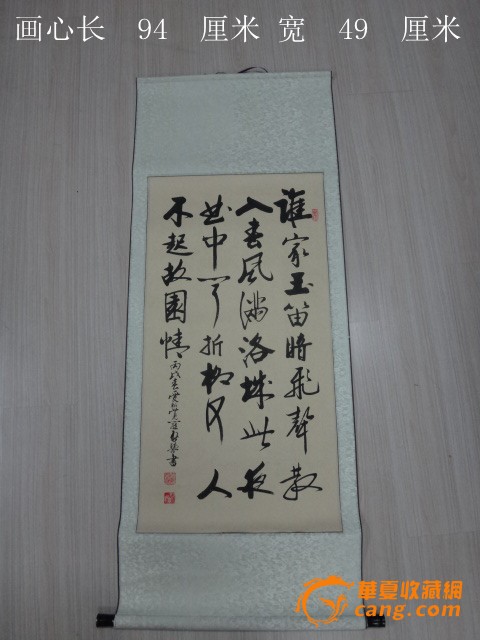 画心长 94 厘米 宽 49 厘米
誰家玉笛暗飛聲散
入春風滿洛城此夜
曲中聞折柳何人
不起故園情
丙戌春 書
華夏收藏網
cang.com